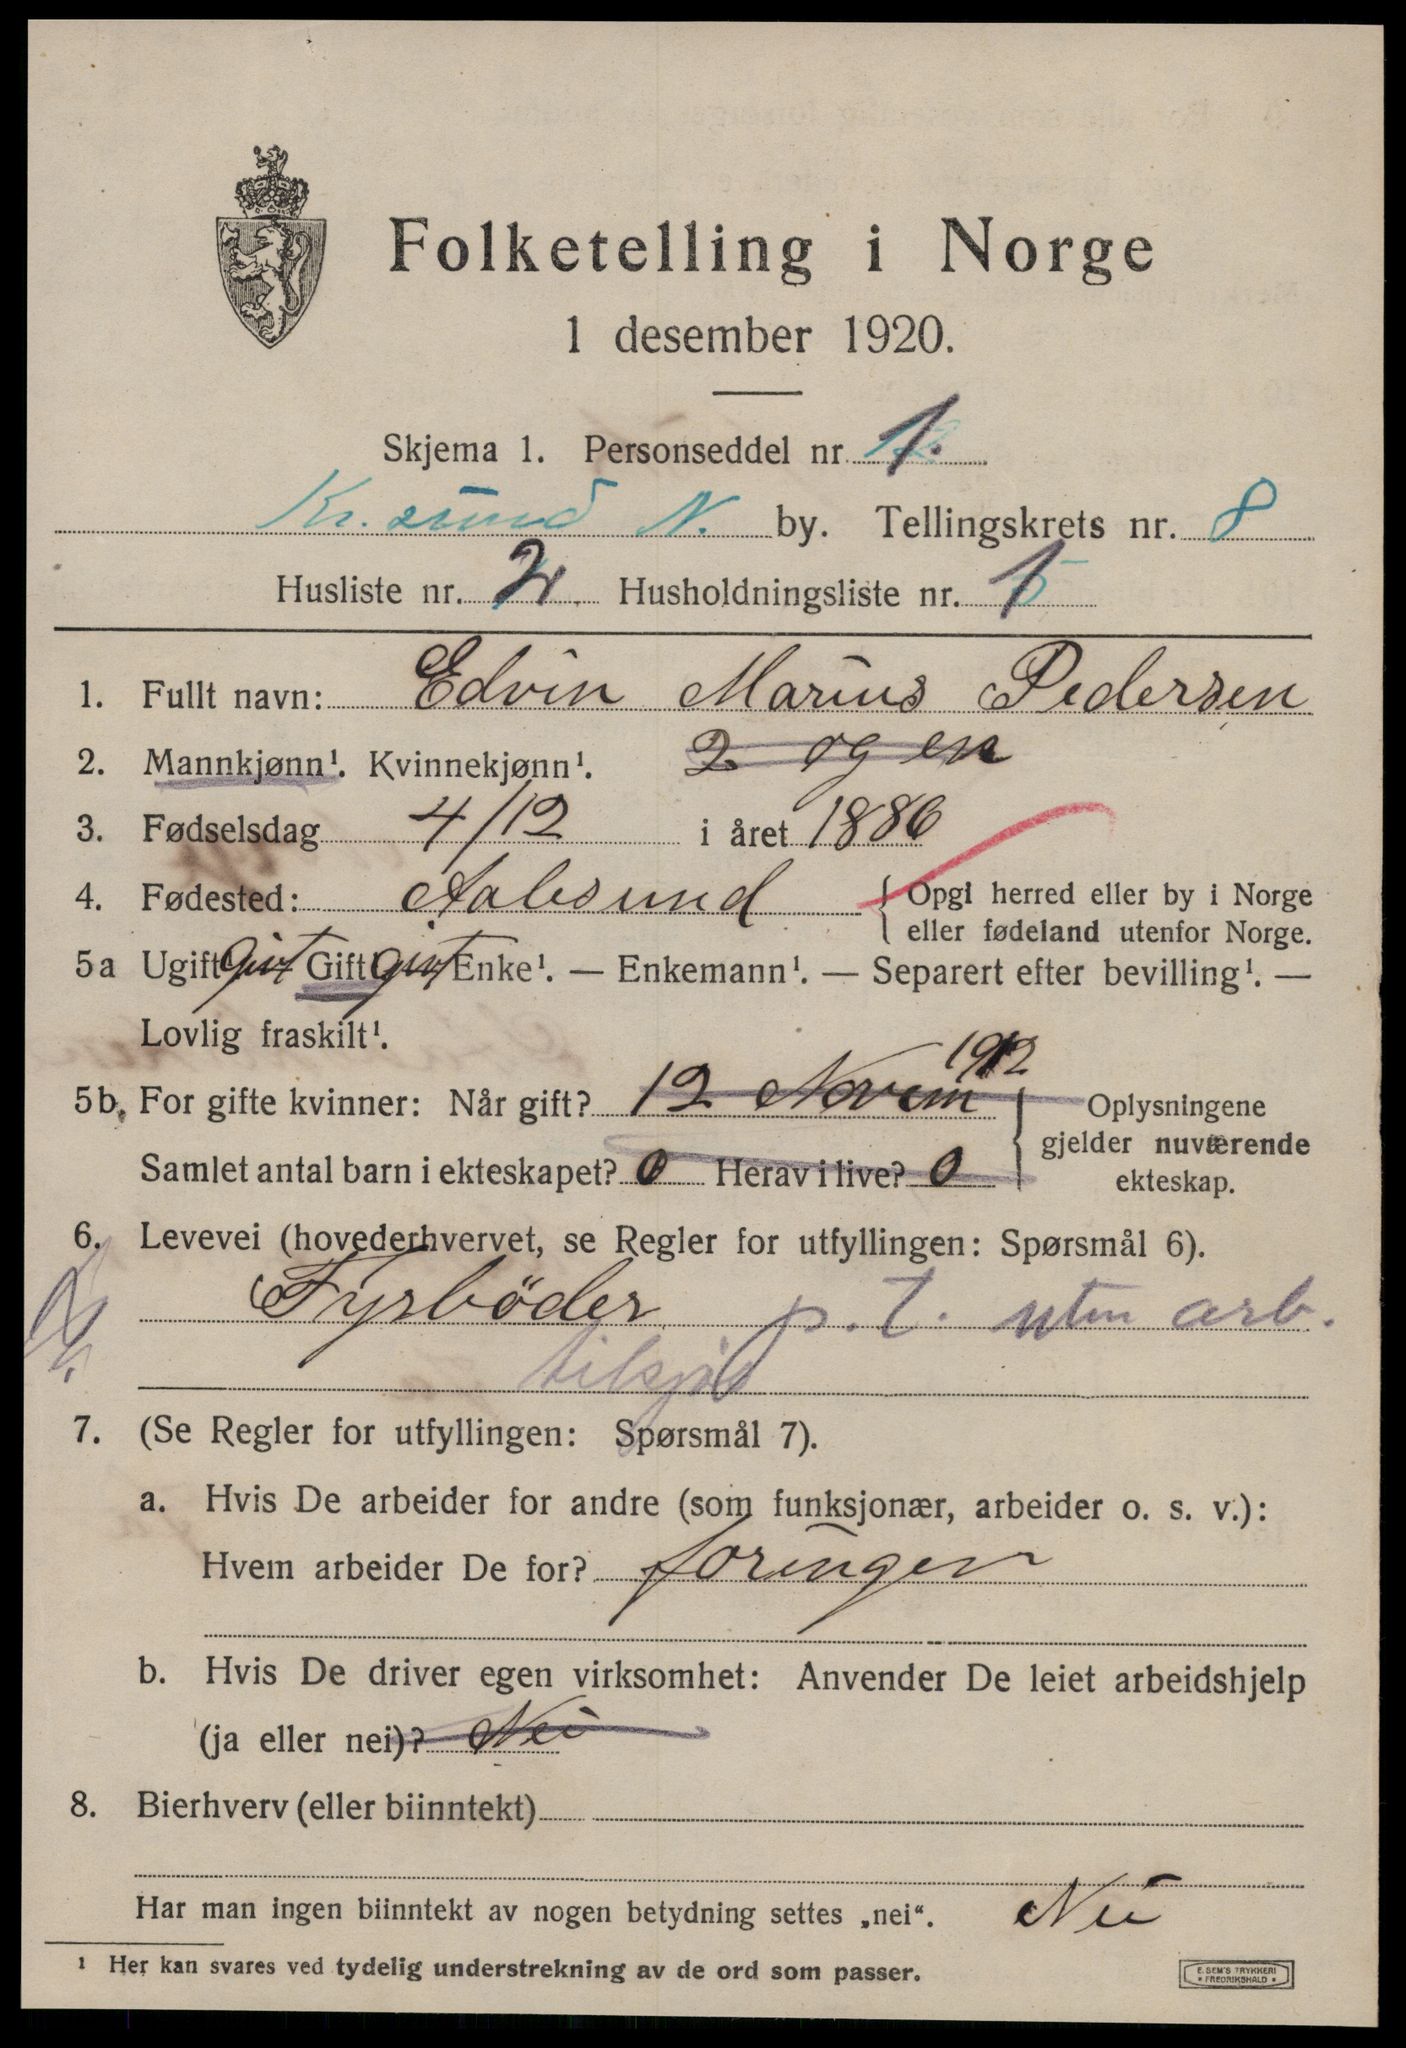 Folketelling i Norge
1 desember 1920.
Skjema 1. Personseddel nr. 1.
Kr. sund N. by. Tellingskrets nr. 8
Husliste nr. 2. Husholdningsliste nr. 1
1. Fullt navn: Edvin Marius Pedersen
2. Mannkjønn¹. Kvinnekjønn¹. 2 og en
3. Fødselsdag 4/12 i året 1886
4. Fødested: Aalesund { Opgi herred eller by i Norge
eller fødeland utenfor Norge.
5a Ugift givt Gift givt Enke¹. — Enkemann¹. — Separert efter bevilling¹. —
Lovlig fraskilt¹.
1912
5b. For gifte kvinner: Når gift? 12 Novem } Oplysningene
gjelder nuværende
Samlet antal barn i ekteskapet? 0 Herav i live? 0 ekteskap.
6. Levevei (hovederhvervet, se Regler for utfyllingen: Spørsmål 6).
Fyrböder p. t. uten arb.
tilsjøs
7. (Se Regler for utfyllingen: Spørsmål 7).
a. Hvis De arbeider for andre (som funksjonær, arbeider o. s. v.):
Hvem arbeider De for? foringen
b. Hvis De driver egen virksomhet: Anvender De leiet arbeidshjelp
(ja eller nei)? Nei
8. Bierhverv (eller biinntekt)
Har man ingen biinntekt av nogen betydning settes „nei“. Nei
¹ Her kan svares ved tydelig understrekning av de ord som passer.
E. SEM'S TRYKKERI
* FREDRIKSHALD *